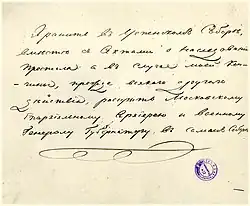 Хранить въ Успенскомъ Соборѣ,
вмѣстѣ съ Актами о наслѣдованіи
Престола а въ случаѣ моей кон-
чины, прежде всякаго другаго
дѣйствія, Московскому
Епархіальному Архіерею и Военному
Генералу Губернатору, въ самомъ Собор